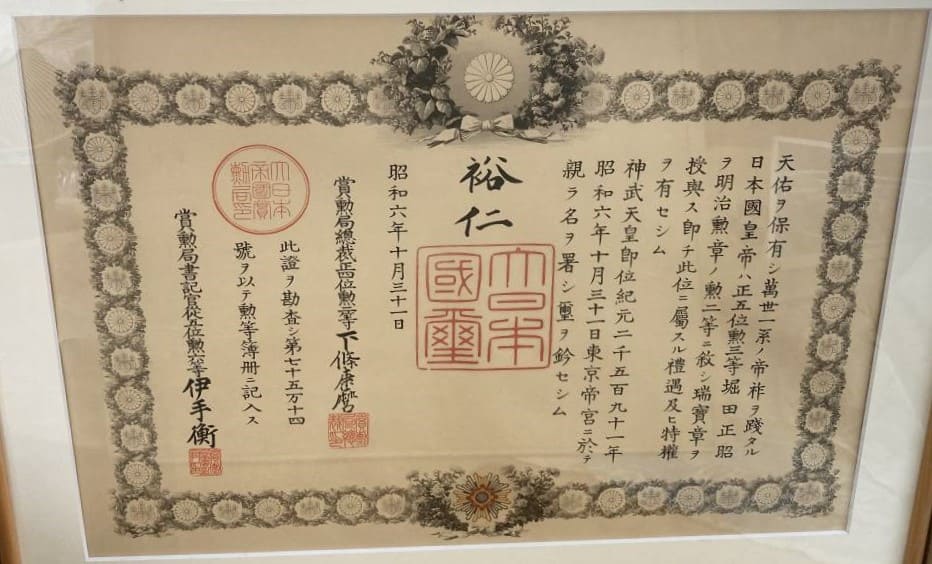 天佑ヲ保有シ萬世一系ノ帝祚ヲ踐タル
日本國皇帝ハ正五位勲三等堀田正昭
ヲ明治勲章ノ勲二等ニ敘シ瑞寶章ヲ
授與ス即チ此位ニ屬スル禮遇及ヒ特權
ヲ有セシム
神武天皇即位紀元二千五百九十一年
昭和六年十月三十一日東京帝宮ニ於テ
親ラ名ヲ署シ璽ヲ鈐セシム
裕仁
大日本
國璽
昭和六年十月三十一日
賞勲局總裁正四位勲二等下條康麿
大日本
帝國賞
勲局印
此證ヲ勘査シ第七十五万十四
號ヲ以テ勲等簿冊ニ記入ス
賞勲局書記官從五位勲六等伊手衡